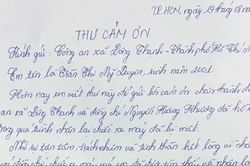 TP.HCM, ngày 19 tháng 08 năm
THƯ CẢM ƠN
Kính gửi: Công an xã Đông Thạnh - Thành phố Hồ Chí
Em tên là Trần Thị Mỹ Duyên, sinh năm 2001.
Hôm nay em viết thư này để gửi lời cảm ơn chân thành
an xã Đông Thạnh và đồng chí Nguyễn Hoàng Phương đã hỗ
trong quá trình nhận lại chiếc xe máy đã bị mất.
Nhờ sự tận tâm, trách nhiệm và tinh thần hết lòng vì